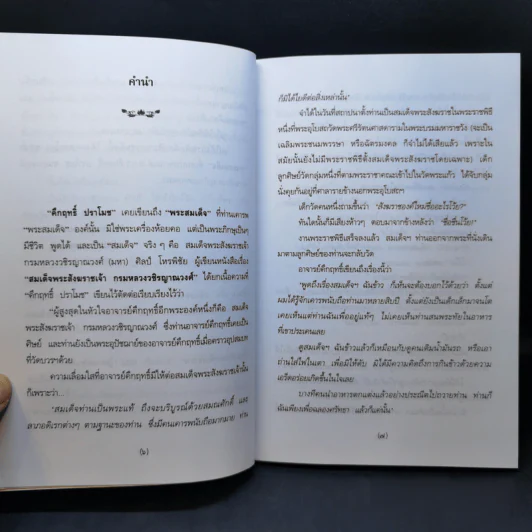 คำนำ
"คึกฤทธิ์ ปราโมช" เคยเขียนถึง "พระสมเด็จ" ที่ท่านเคารพ
"พระสมเด็จ" องค์นั้น มิใช่พระเครื่องห้อยคอ แต่เป็นพระภิกษุเป็นๆ
มีชีวิต พูดได้ และเป็น "สมเด็จ" จริง ๆ คือ สมเด็จพระสังฆราชเจ้า
กรมหลวงวชิรญาณวงศ์ (มหา) ศิลป์ โหรพิชัย ผู้เขียนหนังสือเรื่อง
"สมเด็จพระสังฆราชเจ้า กรมหลวงวชิรญาณวงศ์" ได้ยกเนื้อความที่
"คึกฤทธิ์ ปราโมช" เขียนไว้ตัดต่อเรียบเรียงไว้ว่า
"ผู้สูงสุดในหัวใจอาจารย์คึกฤทธิ์อีกพระองค์หนึ่งก็คือ สมเด็จ
พระสังฆราชเจ้า กรมหลวงวชิรญาณวงศ์ ซึ่งท่านอาจารย์คึกฤทธิ์เคยเป็น
ศิษย์ และท่านยังเป็นพระอุปัชฌาย์ของอาจารย์คึกฤทธิ์เมื่อคราวอุปสมบท
ที่วัดบวรฯด้วย
ความเลื่อมใสที่อาจารย์คึกฤทธิ์มีให้ต่อสมเด็จพระสังฆราชเจ้านั้น
ก็เพราะว่า...
'สมเด็จท่านเป็นพระแท้ ถึงจะบริบูรณ์ด้วยสมณศักดิ์ และ
ลาภอดิเรกต่างๆ ตามฐานะของท่าน ซึ่งมีคนเคารพนับถือมากมาย ท่าน
(๖)
ก็มิได้ใยดีต่อสิ่งเหล่านั้น'
จำได้ในวันที่สถาปนาตั้งท่านเป็นสมเด็จพระสังฆราชในพระราชพิธี
หนึ่งที่พระอุโบสถวัดพระศรีรัตนศาสดารามในพระบรมมหาราชวัง (จะเป็น
เฉลิมพระชนมพรรษา หรือฉัตรมงคล ก็จำไม่ได้เสียแล้ว เพราะใน
สมัยนั้นยังไม่มีพระราชพิธีตั้งสมเด็จพระสังฆราชโดยเฉพาะ) เด็ก
ลูกศิษย์วัดกลุ่มหนึ่งที่ตามพระราชาคณะเข้าไปในวัดพระแก้ว ได้จับกลุ่ม
นั่งคุยกันอยู่ที่ศาลารายข้างนอกพระอุโบสถฯ
เด็กวัดคนหนึ่งถามขึ้นว่า 'สังฆราชองค์ใหม่ชื่ออะไรโว้ย?'
ทันใดนั้นก็มีเสียงห้าวๆ ตอบมาจากข้างหลังว่า 'ชื่อชื่นโว้ย!'
งานพระราชพิธีเสร็จลงแล้ว สมเด็จฯ ท่านออกจากพระที่นั่งเดิน
มาตามลูกศิษย์ของท่านจะกลับวัด
อาจารย์คึกฤทธิ์เขียนถึงเรื่องนี้ว่า
'พูดถึงเรื่องสมเด็จฯ ฉันข้าว ก็เห็นจะต้องบอกไว้ด้วยว่า ตั้งแต่
ผมได้รู้จักเคารพนับถือท่านมาหลายสิบปี ตั้งแต่ยังเป็นเด็กเล็กมาจนโต
เคยเห็นแต่ท่านฉันเพื่ออยู่แท้ๆ ไม่เคยเห็นท่านสนพระทัยในอาหาร
ที่เขาประเคนเลย
ดูสมเด็จฯ ฉันข้าวแล้วก็เหมือนกับดูคนเติมน้ำมันรถ หรือเอา
ถ่านใส่ไฟในเตา เพื่อมิให้ดับ มิได้มีความคิดถึงการกินข้าวด้วยความ
เอร็ดอร่อยเกิดขึ้นในใจเลย
บางทีคนนำอาหารตกแต่งแล้วอย่างประณีตไปถวายท่าน ท่านก็
ฉันเพียงเพื่อฉลองศรัทธา แล้วก็แค่นั้น'
(๗)